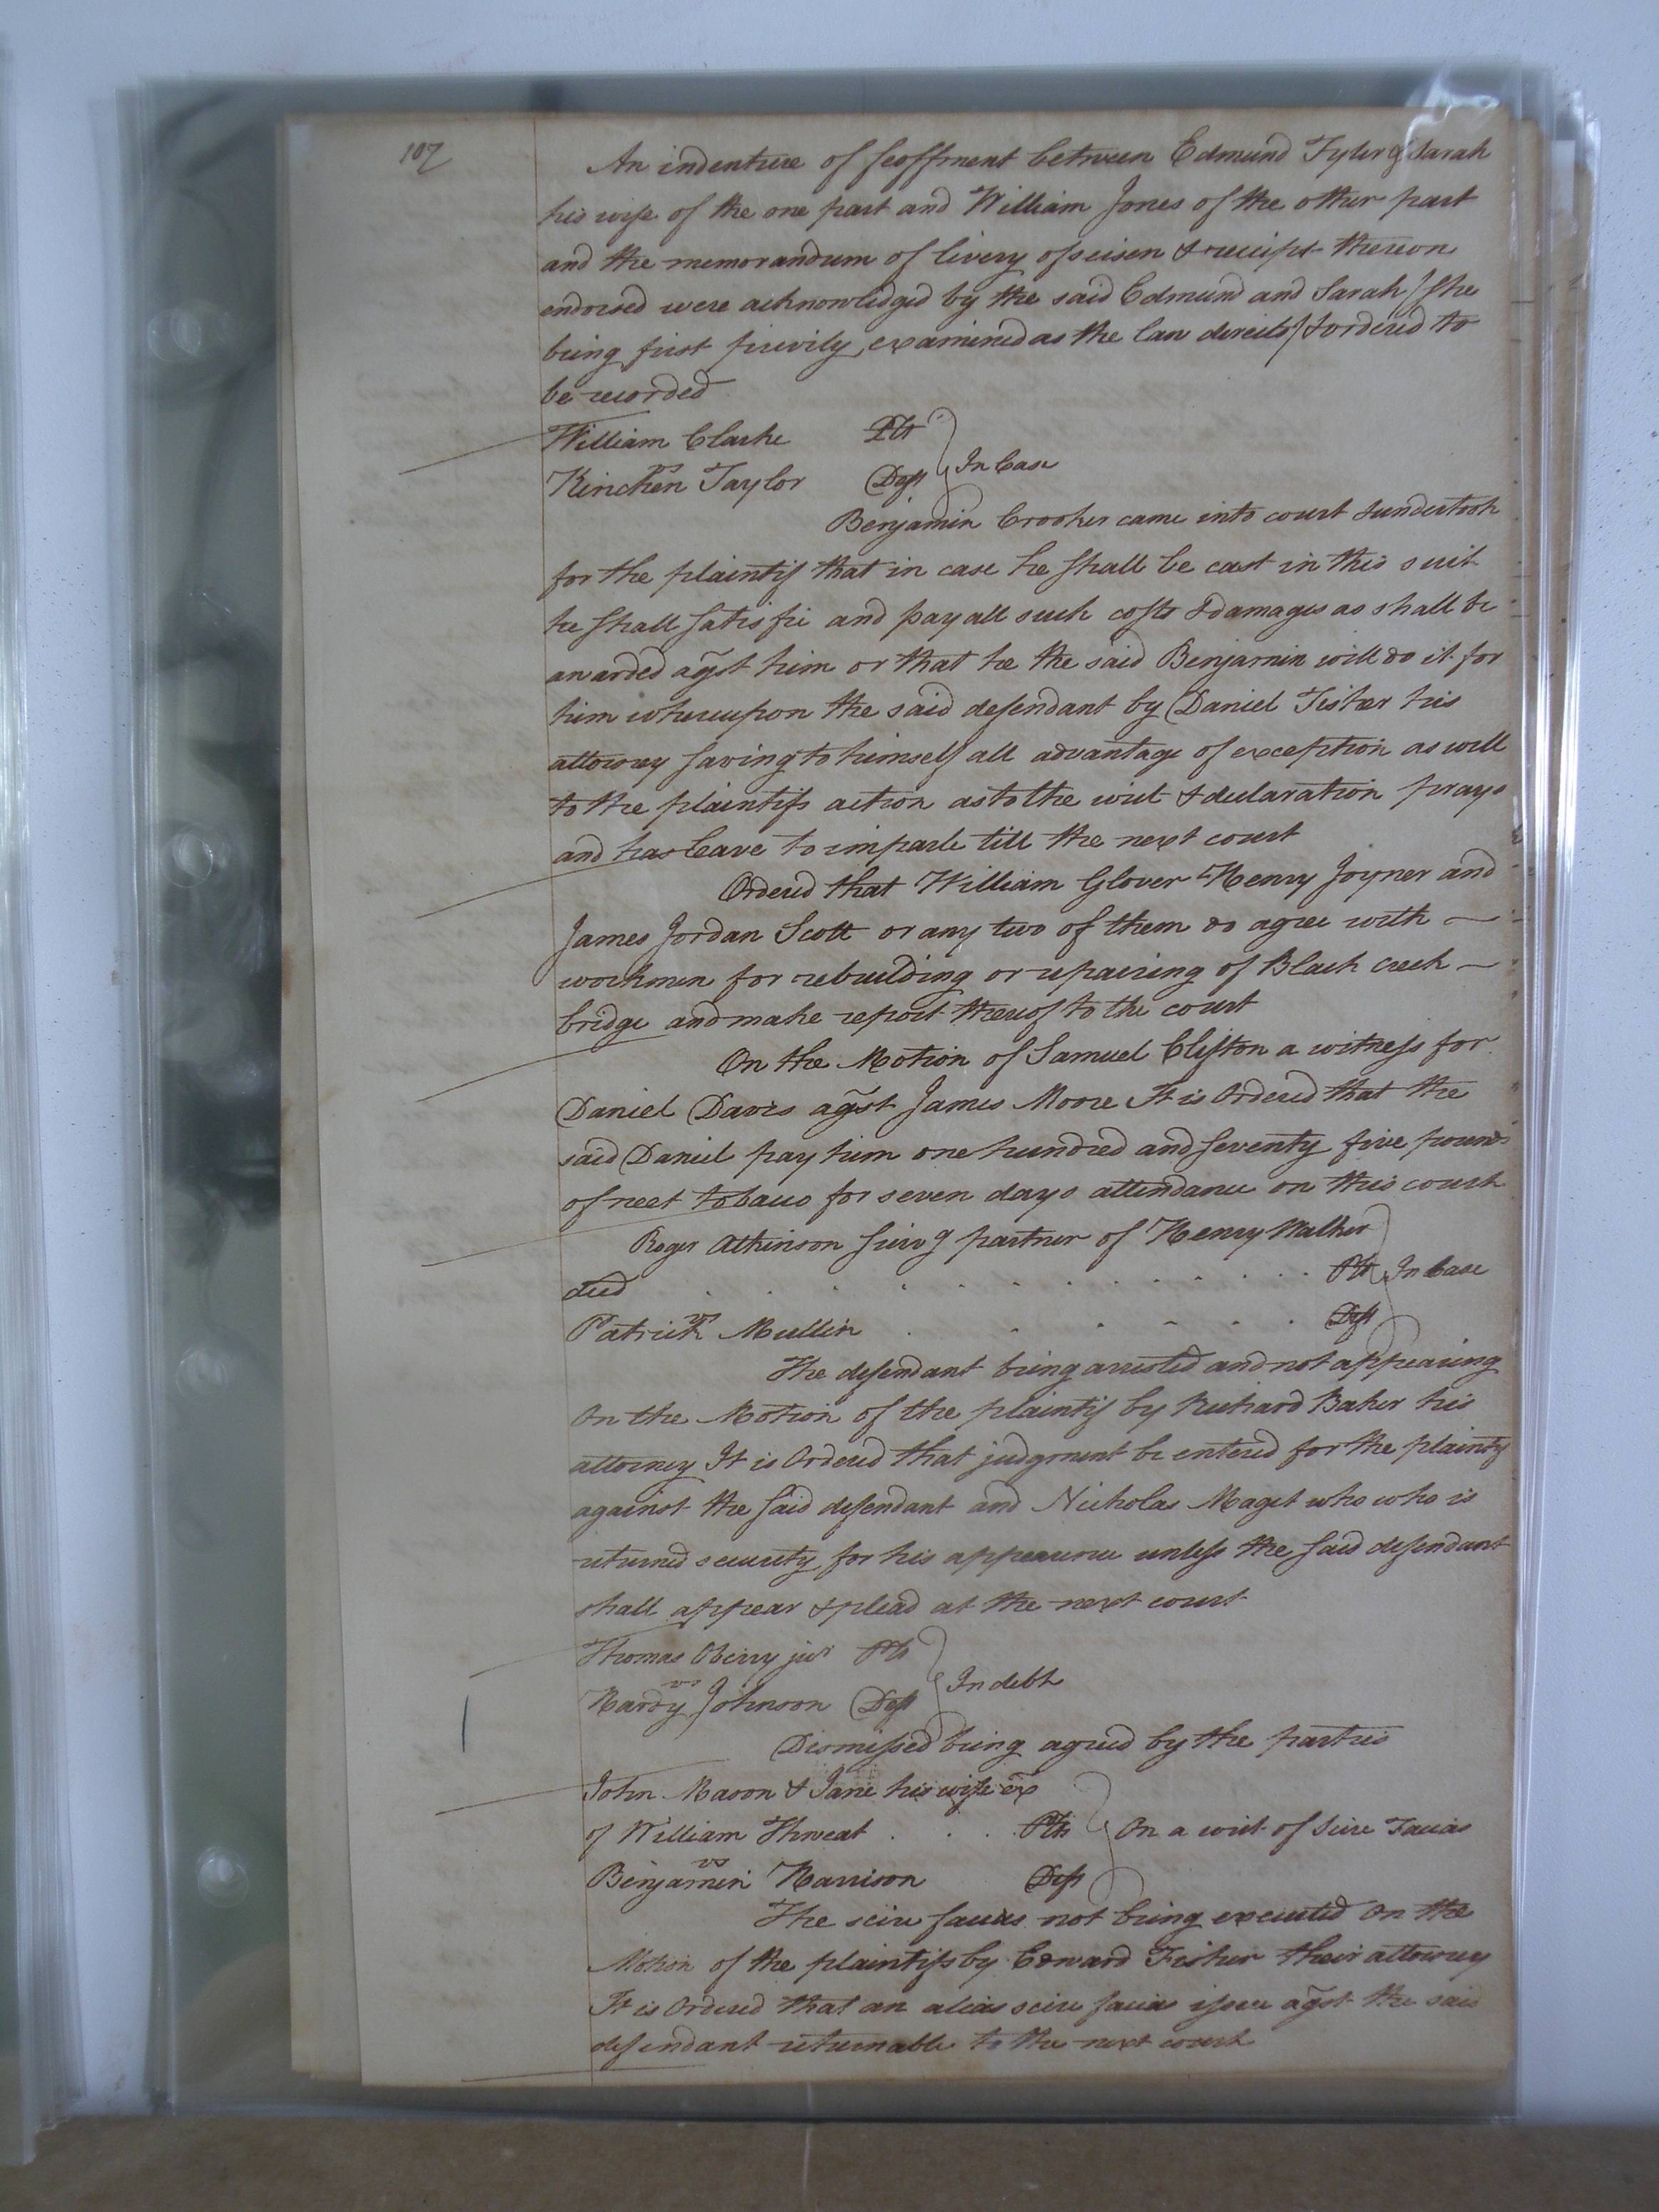 107
An indenture of feoffment between Edmund Tyler & Sarah
his wife of the one part and William Jones of the other part
and the memorandum of livery of seisen & receipt thereon
endorsed were acknowledged by the said Edmund and Sarah /she
being first privily, examined as the law directs/ & ordered to
be recorded
William Clarke Plt
vs
Kinchen Taylor Deft
In Case
Benjamin Crooker came into court & undertook
for the plaintif that in case he shall be cast in this suit
he shall satisfie and pay all such costs & damages as shall be
awarded agst him or that he the said Benjamin will do it for
him whereupon the said defendant by Daniel Fisher his
attorney saving to himself all advantage of exception as well
to the plaintifs action as to the writ & declaration prays
and has leave to imparle till the next court
Ordered that William Glover Henry Joyner and
James Jordan Scott or any two of them do agree with
workmen for rebuilding or repairing of Black creek
bridge and make report thereof to the court
On the Motion of Samuel Clifton a witness for
Daniel Davis agst James Moore It is Ordered that the
said Daniel pay him one hundred and seventy five pounds
of neet tobacco for seven days attendance on this court
Roger Atkinson surv g partner of Henry Walker
decd . . . . . . . . . . . Plt In Case
vs
Patrick Mullin . . . . . . Deft
The defendant being arrested and not appearing
On the Motion of the plaintif by Richard Baker his
attorney It is Ordered that judgment be entered for the plaintif
against the said defendant and Nicholas Maget who who is
returned security for his appearance unless the said defendant
shall appear & plead at the next court
Thomas Oberry junr Plt
vs
Hardy Johnson Deft
In debt
Dismissed being agreed by the parties
John Mason & Jane his wife ex
of William Threeat . . . Plts On a writ of Scire Facias
vs
Benjamin Harrison Deft
The scire facias not being executed On the
Motion of the plaintifs by Edward Fisher their attorney
It is Ordered that an alias scire facias issue agst the said
defendant returnable to the next court